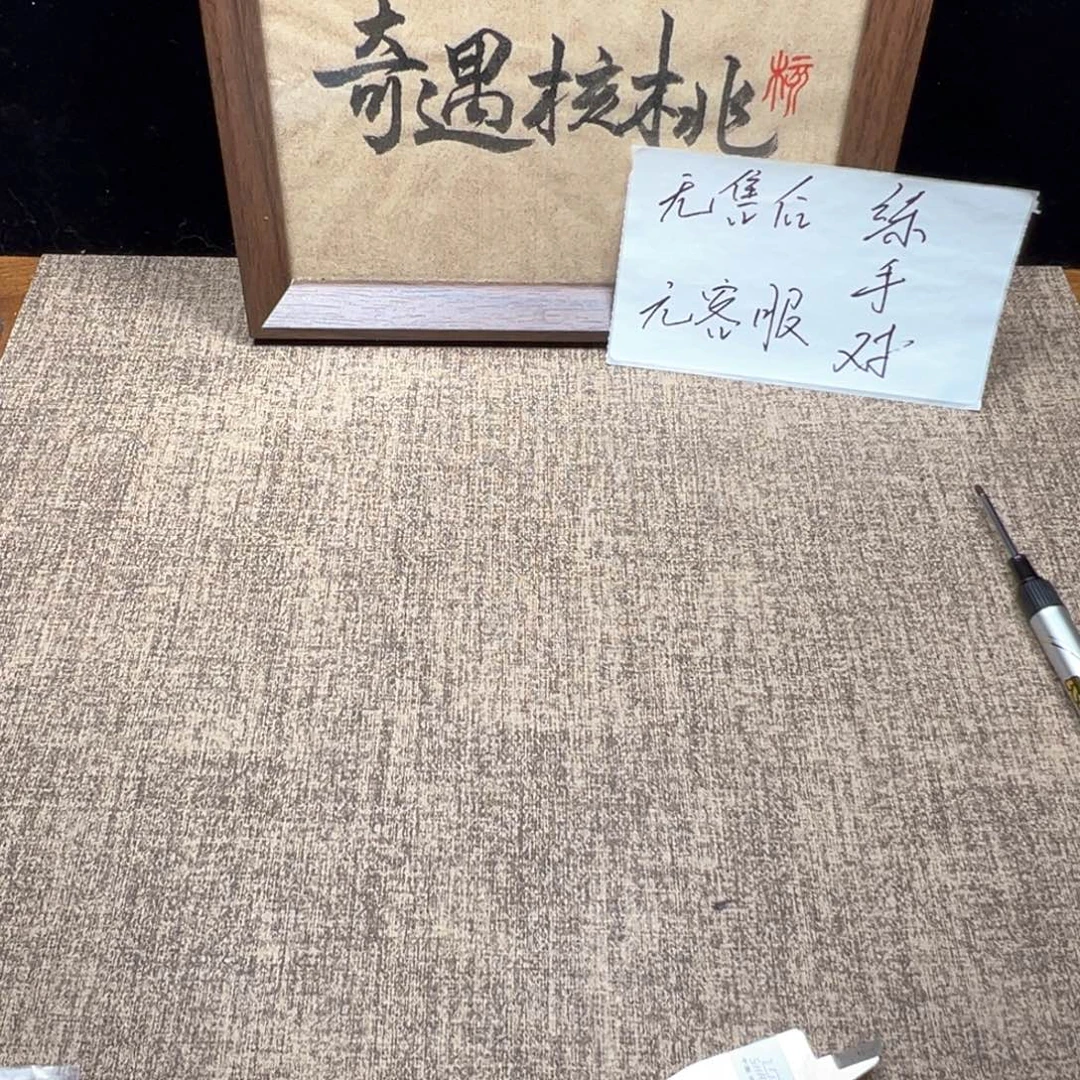 奇遇核桃
核
无售后
无客服
练手对